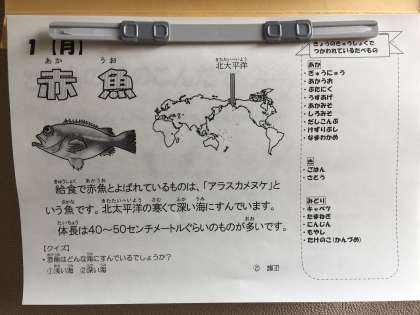 1【月】
あか うお
赤魚
きたたいへいよう
北太平洋
きゅうしょく あかうお
給食で赤魚とよばれているものは、「アラスカメヌケ」と
さかな きたたいへいよう さむ ふか うみ
いう魚です。北太平洋の寒くて深い海にすんでいます。
たいちょう おお
体長は40～50センチメートルぐらいのものが多いです。
【クイズ】
・赤魚はどんな海にすんでいるでしょうか？
①浅い海 ②深い海
きょうのきゅうしょくで
つかわれているたべもの
あか
・ぎゅうにゅう
・あかうお
・ぶたにく
・うすあげ
・あかみそ
・しろみそ
・だしこんぶ
・けずりぶし
・なまわかめ
き
・ごはん
・さとう
みどり
・キャベツ
・たまねぎ
・にんじん
・もやし
・たけのこ(かんづめ)